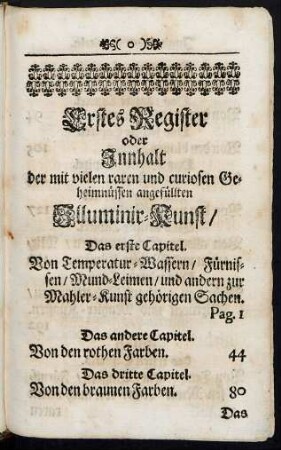 ( o )
Erstes Register
oder
Innhalt
der mit vielen raren und curiosen Ge-
heimnüssen angefüllten
Illuminir-Kunst/
Das erste Capitel.
Von Temperatur-Wassern/ Fürnis-
sen/ Mund-Leimen/ und andern zur
Mahler-Kunst gehörigen Sachen.
Pag. 1
Das andere Capitel.
Von den rothen Farben. 44
Das dritte Capitel.
Von den braunen Farben. 80
Das